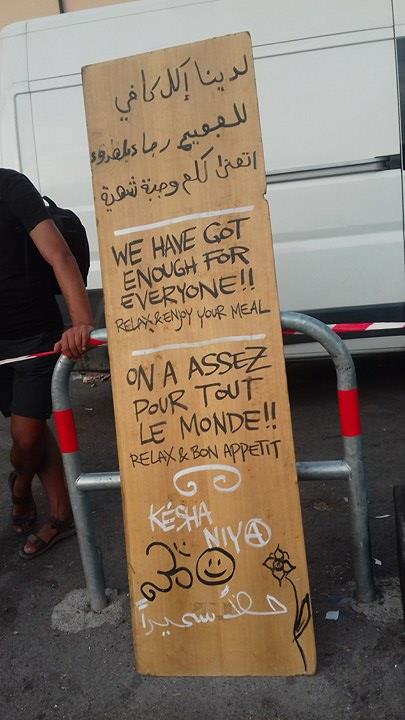 لدينا إكل كافي
للجميع رجاء بالهدوء
اتمنا لكم وجبة شهية
WE HAVE GOT
ENOUGH FOR
EVERYONE!!
RELAX & ENJOY YOUR MEAL
ON A ASSEZ
POUR TOUT
LE MONDE!!
RELAX & BON APPETIT
KÉSHA
NIYA
ॐ
حظاً سعيداً